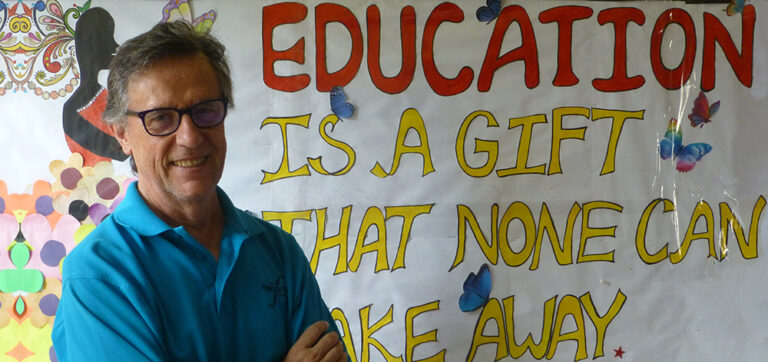 EDUCATION
IS A GIFT
THAT NONE CAN
TAKE AWAY.